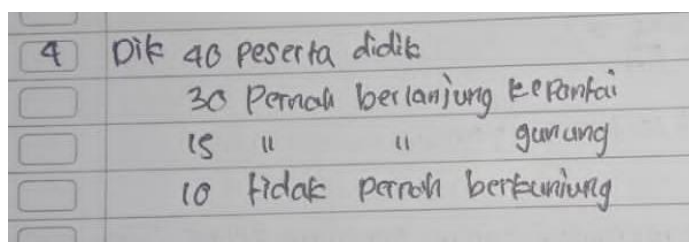 4 Dik 40 peserta didik
30 Pernah berlanjung kepantai
15 " " gunung
10 tidak pernah berkunjung